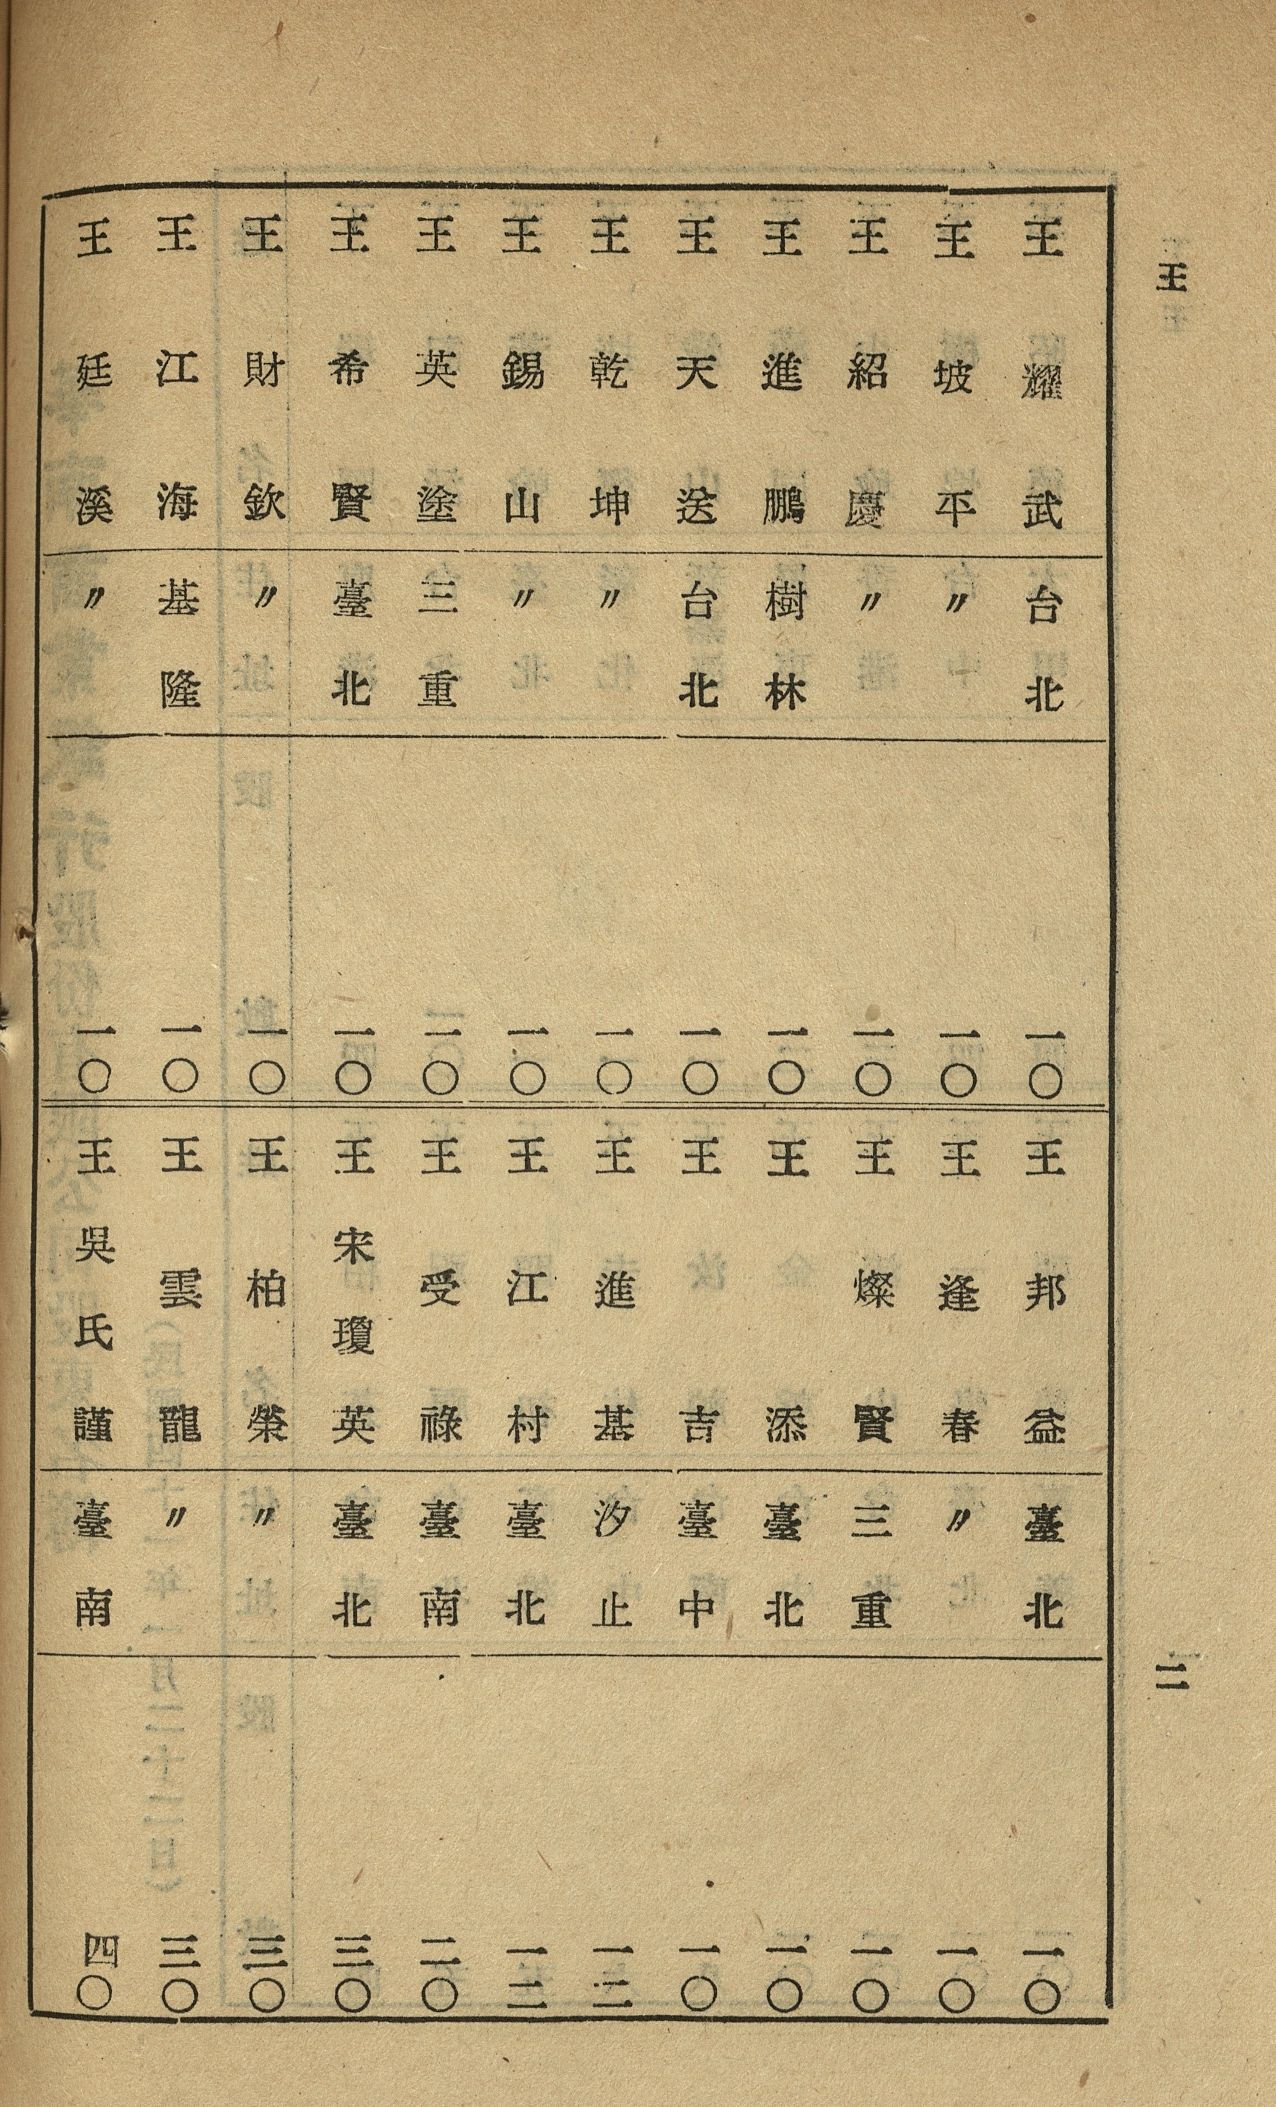 王
王耀武 台北 一〇
王坡平 〃 一〇
王紹慶 〃 一〇
王進鵬 樹林 一〇
王天送 台北 一〇
王乾坤 〃 一〇
王錫山 〃 一〇
王英塗 三重 一〇
王希賢 臺北 一〇
王財欽 〃 一〇
王江海 基隆 一〇
王廷溪 〃 一〇
王邦益 臺北 一〇
王逢春 〃 一〇
王燦賢 三重 一〇
王添 臺北 一〇
王吉 臺中 一〇
王進基 汐止 一二
王江村 臺北 一二
王受祿 臺南 二〇
王宋瓊英 臺北 三〇
王柏榮 〃 三〇
王雲龍 〃 三〇
王吳氏謹 臺南 四〇
二